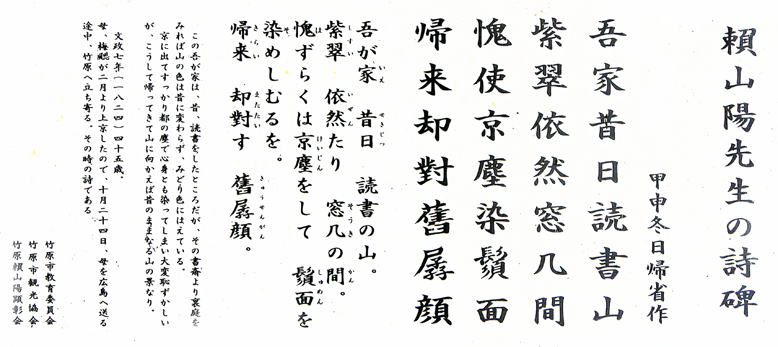 賴山陽先生の詩碑
甲申冬日帰省作
吾家昔日読書山
紫翠依然窓几間
愧使京塵染鬚面
帰来却對舊孱顔
吾が家 昔日 読書の山。
いえ せきじつ
紫翠 依然たり 窓几の間。
しすい いぜん そうき かん
愧ずらくは京塵をして 鬚面を
は けいじん しゅめん
染めしむるを。
そ
帰来 却對す 舊孱顔。
きらい またたい きゅうせんがん
この吾が家は、昔、読書をしたところだが、その書斎より裏庭を
みれば山の色は昔に変わらず、みどり色にはえている。
京に出てすっかり都の塵で心身とも染ってしまい大変恥ずかしい
が、こうして帰ってきて山に向かえば昔のままなる山の景なり。
文政七年(一八二四)四十五歳。
母、梅颸が二月より上京したので、十月二十四日、母を広島へ送る
途中、竹原へ立ち寄る。その時の詩である
竹原市教育委員会
竹原市観光協会
竹原賴山陽顕彰会